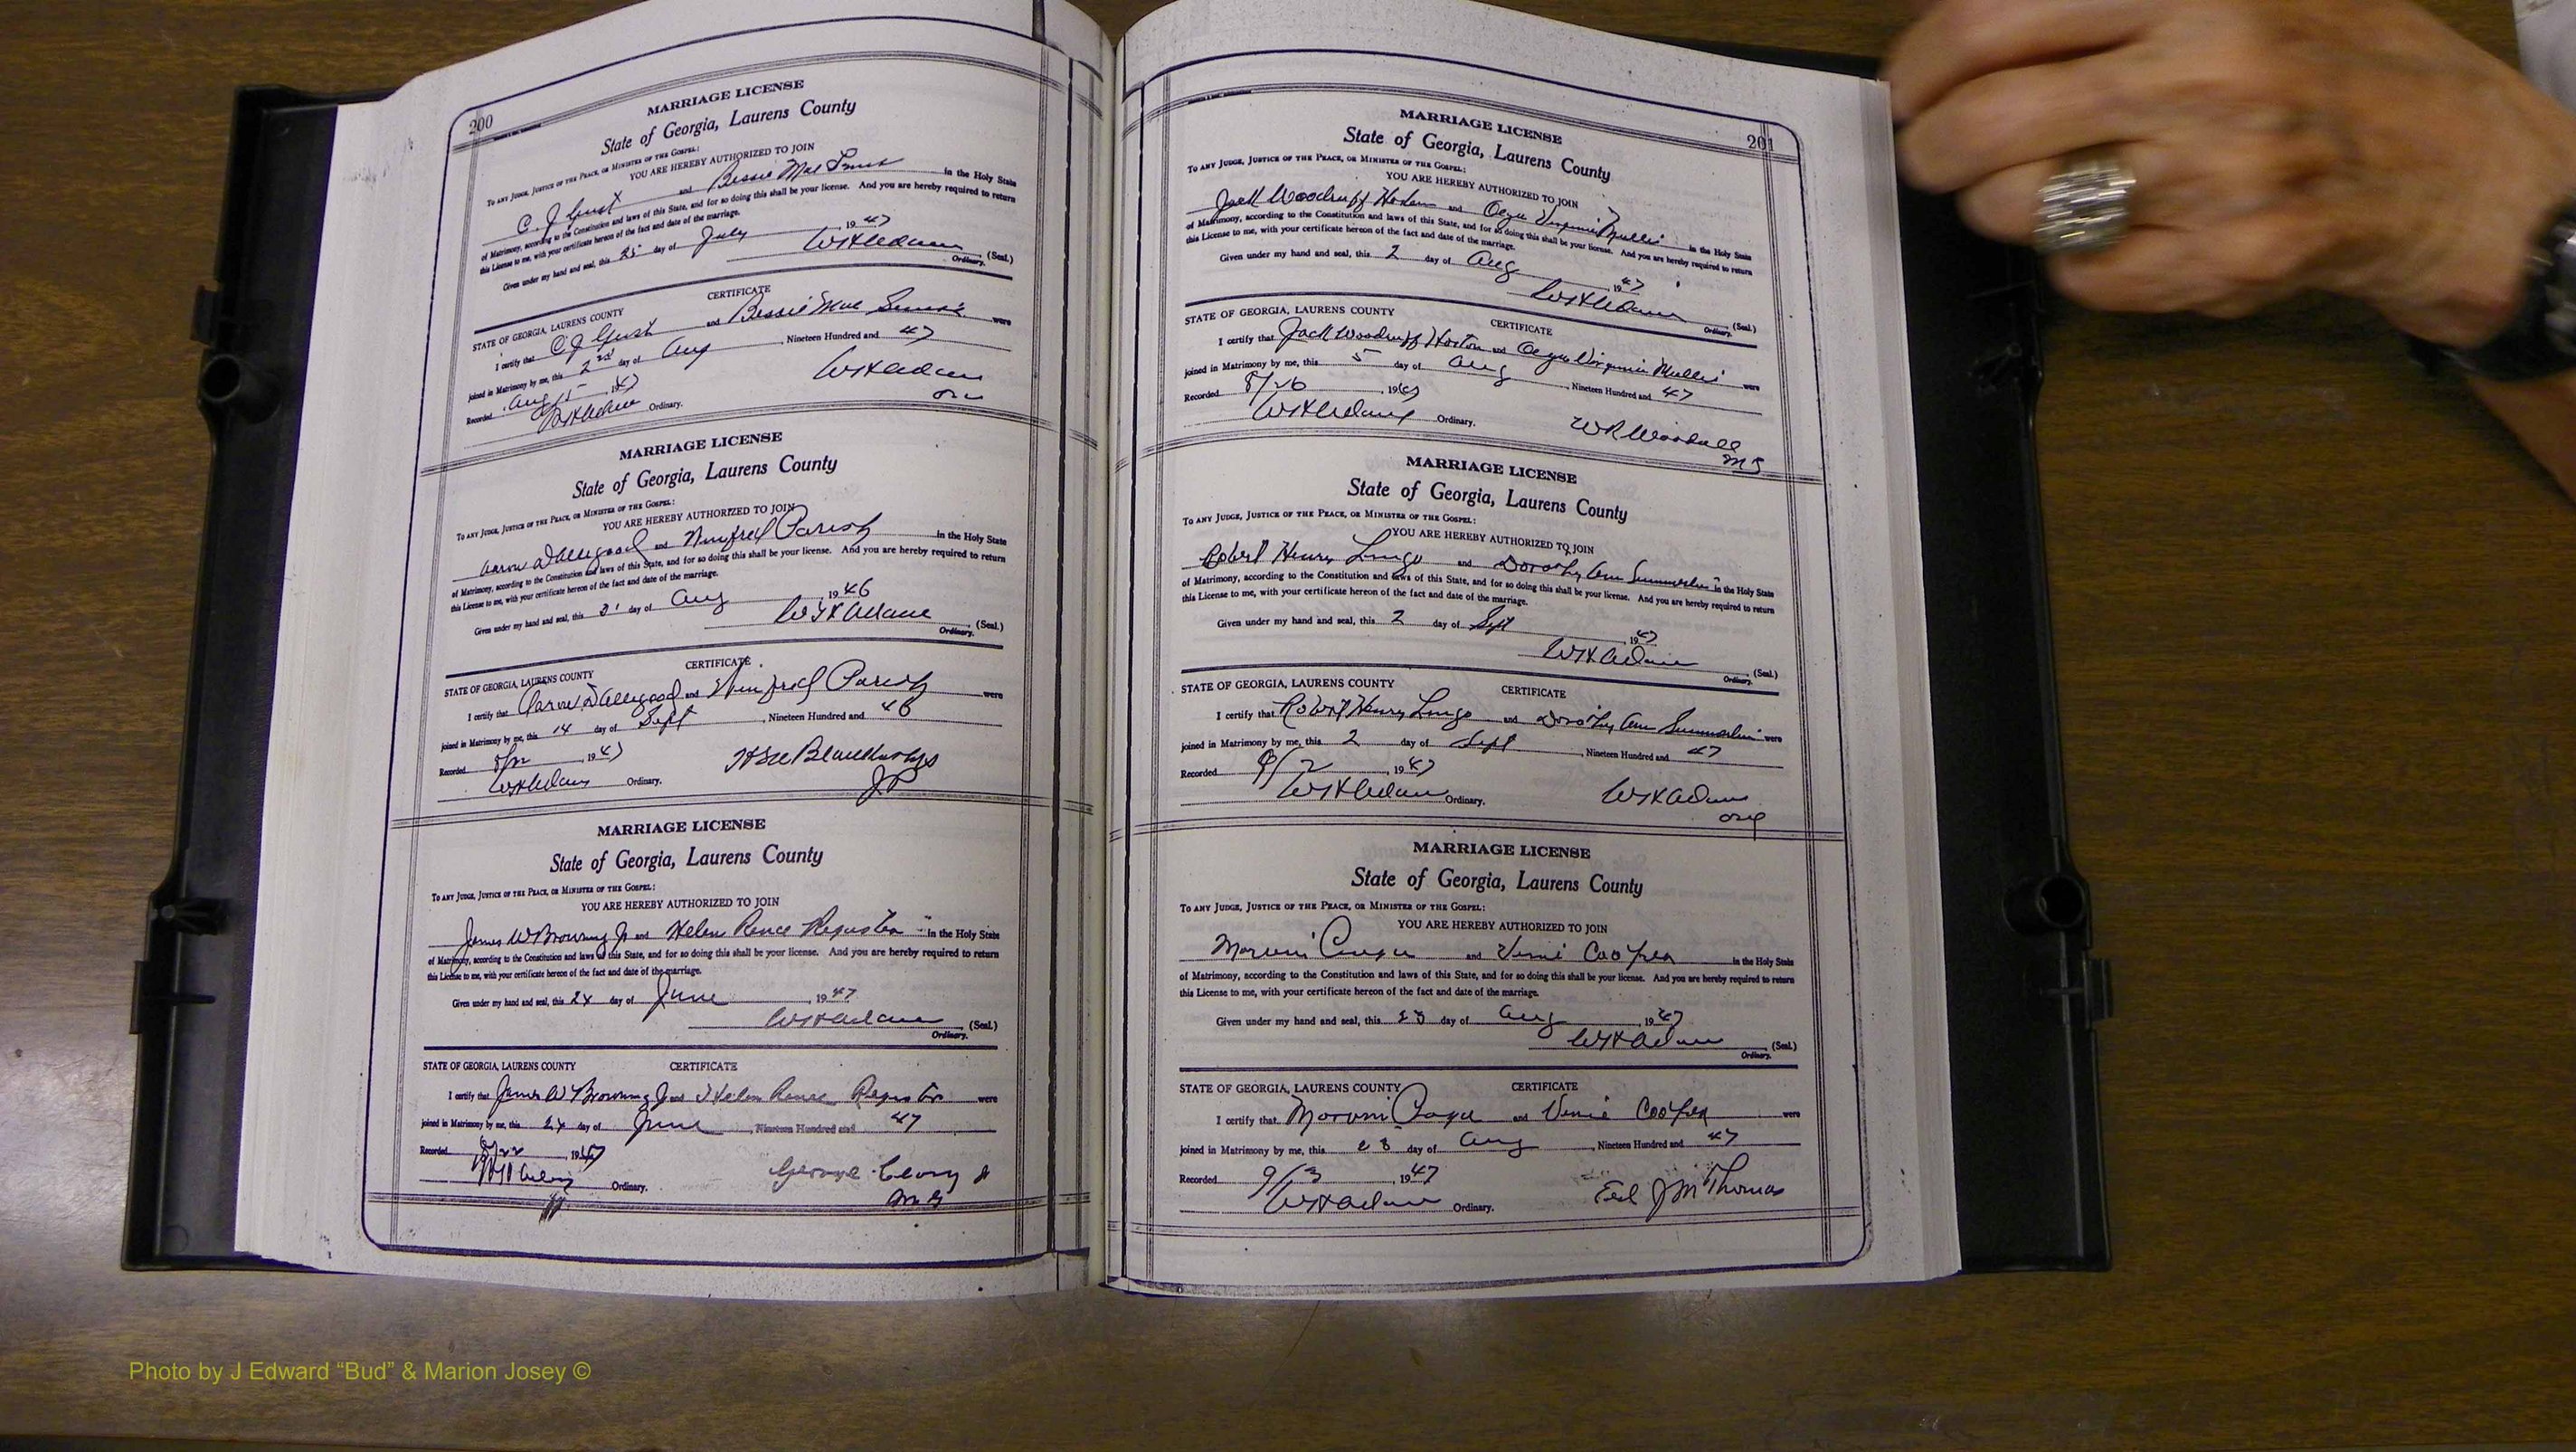 200
MARRIAGE LICENSE
State of Georgia, Laurens County
To ANY JUDGE, JUSTICE OF THE PEACE, OR MINISTER OF THE GOSPEL:
YOU ARE HEREBY AUTHORIZED TO JOIN
C. J. and Bessie Mae in the Holy State
of Matrimony, according to the Constitution and laws of this State, and for so doing this shall be your license. And you are hereby required to return
this License to me, with your certificate hereon of the fact and date of the marriage.
Given under my hand and seal, this 25 day of July, 1947
WH Adams (Seal.)
Ordinary.
STATE OF GEORGIA, LAURENS COUNTY CERTIFICATE
I certify that C J and Bessie Mae were
joined in Matrimony by me, this day of Aug, Nineteen Hundred and 47
Recorded Aug 5, 1947 WH Adams
WH Adams Ordinary.
MARRIAGE LICENSE
State of Georgia, Laurens County
To ANY JUDGE, JUSTICE OF THE PEACE, OR MINISTER OF THE GOSPEL:
YOU ARE HEREBY AUTHORIZED TO JOIN
Aaron D Allegood and Winfred Parish in the Holy State
of Matrimony, according to the Constitution and laws of this State, and for so doing this shall be your license. And you are hereby required to return
this License to me, with your certificate hereon of the fact and date of the marriage.
Given under my hand and seal, this 31 day of Aug, 1946
WH Adams (Seal.)
Ordinary.
STATE OF GEORGIA, LAURENS COUNTY CERTIFICATE
I certify that Aaron D Allegood and Winfred Parish were
joined in Matrimony by me, this 14 day of Sept, Nineteen Hundred and 46
Recorded, 1947
WH Adams Ordinary.
JP
MARRIAGE LICENSE
State of Georgia, Laurens County
To ANY JUDGE, JUSTICE OF THE PEACE, OR MINISTER OF THE GOSPEL:
YOU ARE HEREBY AUTHORIZED TO JOIN
James W Browning Jr and Helen Renee Register in the Holy State
of Matrimony, according to the Constitution and laws of this State, and for so doing this shall be your license. And you are hereby required to return
this License to me, with your certificate hereon of the fact and date of the marriage.
Given under my hand and seal, this 24 day of June, 1947
WH Adams (Seal.)
Ordinary.
STATE OF GEORGIA, LAURENS COUNTY CERTIFICATE
I certify that James W Browning Jr and Helen Renee Register were
joined in Matrimony by me, this 24 day of June, Nineteen Hundred and 47
Recorded 8/22, 1947
WH Adams Ordinary. George Clary Jr
M G
201
MARRIAGE LICENSE
State of Georgia, Laurens County
To ANY JUDGE, JUSTICE OF THE PEACE, OR MINISTER OF THE GOSPEL:
YOU ARE HEREBY AUTHORIZED TO JOIN
Jack Woodruff and Virginia Mullis in the Holy State
of Matrimony, according to the Constitution and laws of this State, and for so doing this shall be your license. And you are hereby required to return
this License to me, with your certificate hereon of the fact and date of the marriage.
Given under my hand and seal, this 2 day of Aug, 1947
WH Adams (Seal.)
Ordinary.
STATE OF GEORGIA, LAURENS COUNTY CERTIFICATE
I certify that Jack Woodruff Horton and Virginia Mullis were
joined in Matrimony by me, this 5 day of Aug, Nineteen Hundred and 47
Recorded 8/26, 1947
WH Adams Ordinary. WR Woodall
MG
MARRIAGE LICENSE
State of Georgia, Laurens County
To ANY JUDGE, JUSTICE OF THE PEACE, OR MINISTER OF THE GOSPEL:
YOU ARE HEREBY AUTHORIZED TO JOIN
Robert Henry Lingo and Dorothy Ann Summerlin in the Holy State
of Matrimony, according to the Constitution and laws of this State, and for so doing this shall be your license. And you are hereby required to return
this License to me, with your certificate hereon of the fact and date of the marriage.
Given under my hand and seal, this 2 day of Sept, 1947
WH Adams (Seal.)
Ordinary.
STATE OF GEORGIA, LAURENS COUNTY CERTIFICATE
I certify that Robert Henry Lingo and Dorothy Ann Summerlin were
joined in Matrimony by me, this 2 day of Sept, Nineteen Hundred and 47
Recorded 9/2, 1947
WH Adams Ordinary. WH Adams
Ord
MARRIAGE LICENSE
State of Georgia, Laurens County
To ANY JUDGE, JUSTICE OF THE PEACE, OR MINISTER OF THE GOSPEL:
YOU ARE HEREBY AUTHORIZED TO JOIN
Moroni and Venie Cooper in the Holy State
of Matrimony, according to the Constitution and laws of this State, and for so doing this shall be your license. And you are hereby required to return
this License to me, with your certificate hereon of the fact and date of the marriage.
Given under my hand and seal, this 23 day of Aug, 1947
WH Adams (Seal.)
Ordinary.
STATE OF GEORGIA, LAURENS COUNTY CERTIFICATE
I certify that Moroni and Venie Cooper were
joined in Matrimony by me, this 23 day of Aug, Nineteen Hundred and 47
Recorded 9/3, 1947
WH Adams Ordinary. J M Thomas
Photo by J Edward “Bud” & Marion Josey ©